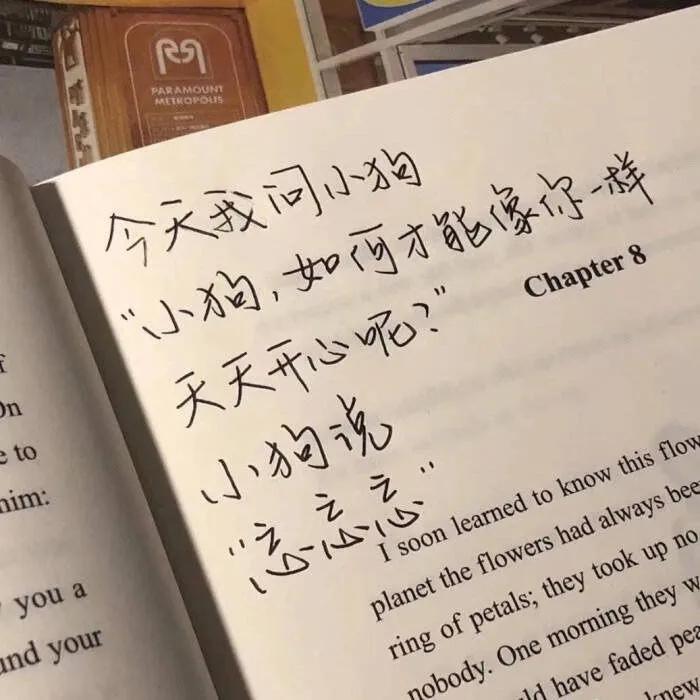 PARAMOUNT
METROPOLIS
今天我问小狗
“小狗，如何才能像你一样
天天开心呢？”
小狗说
“忘忘忘”
Chapter 8
I soon learned to know this flow
planet the flowers had always bee
ring of petals; they took up no
nobody. One morning they w
ld have faded pea
knew
On
e to
him:
you a
und your